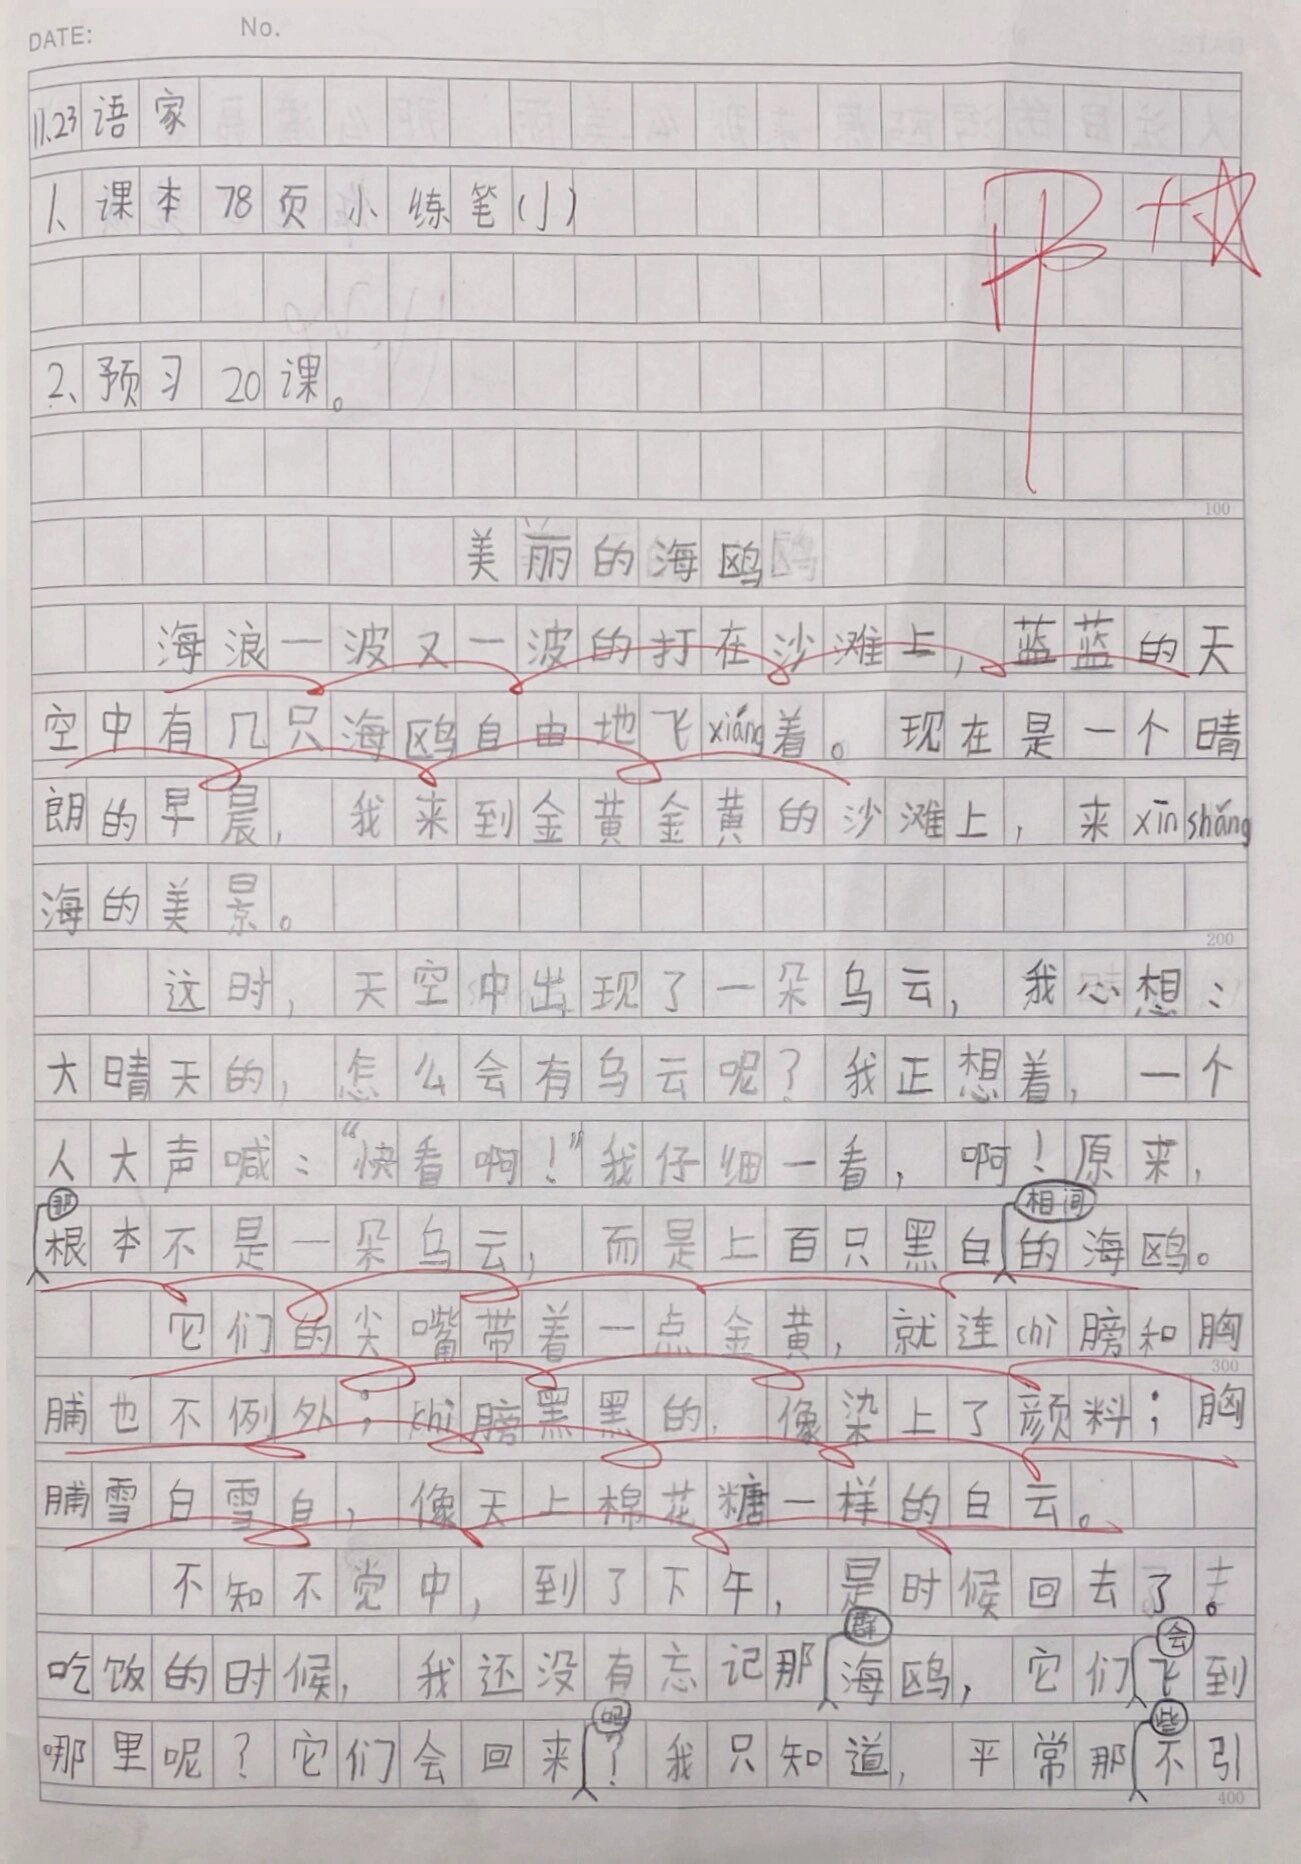 DATE: No.
11.23语家
1、课本78页小练笔(1)
2、预习20课。
100
美丽的海鸥
海浪一波又一波的打在沙滩上，蓝蓝的天
空中有几只海鸥自由地飞xiáng着。现在是一个晴
朗的早晨，我来到金黄金黄的沙滩上，来xīn shǎng
海的美景。
200
这时，天空中出现了一朵乌云，我心想：
大晴天的，怎么会有乌云呢？我正想着，一个
人大声喊：“快看啊！”我仔细一看，啊！原来，
那根本不是一朵乌云，而是上百只黑白相间的海鸥。
它们的尖嘴带着一点金黄，就连chì膀和胸
300
脯也不例外；chì膀黑黑的，像染上了颜料；胸
脯雪白雪白，像天上棉花糖一样的白云。
不知不觉中，到了下午，是时候回去了。
吃饭的时候，我还没有忘记那群海鸥，它们会飞到
哪里呢？它们会回来吗？我只知道，平常那些不引
400